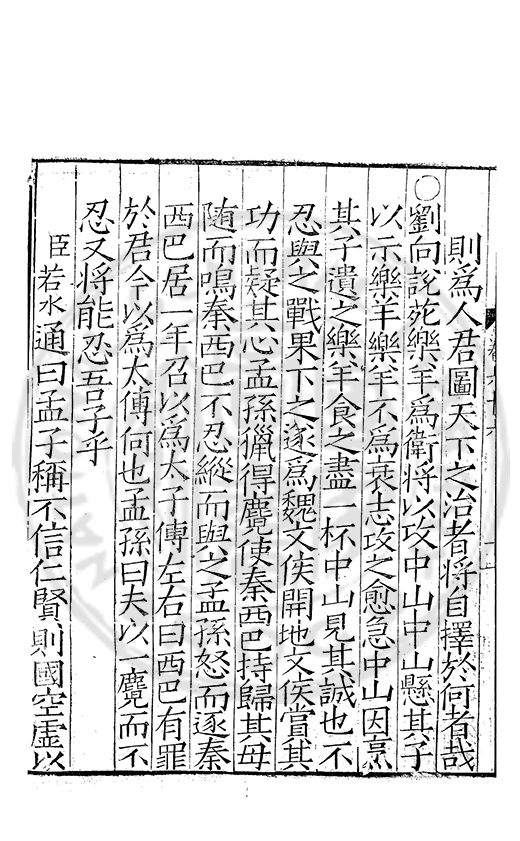 則爲人君圖天下之治者將自擇於何者哉
○劉向說苑樂羊爲衛將以攻中山中山懸其子
以示樂羊樂羊不爲衰志攻之愈急中山因烹
其子遺之樂羊食之盡一杯中山見其誠也不
忍與之戰果下之遂爲魏文侯開地文侯賞其
功而疑其心孟孫獵得麑使秦西巴持歸其母
随而鳴秦西巴不忍縱而與之孟孫怒而逐秦
西巴居一年召以爲太子傅左右曰西巴有罪
於君今以爲太傅何也孟孫曰夫以一麑而不
忍又將能忍吾子乎
臣若水通曰孟子稱不信仁賢則國空虛以